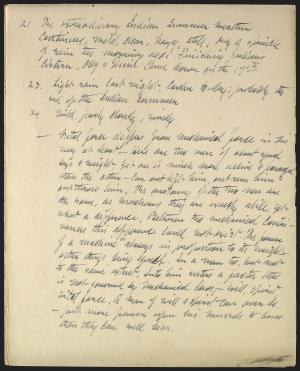 21 The extraordinary Indian Summer weather
continues, mild, clear, hazy, still, only a sprinkle
of rain the morning of 21st. Finishing
cistern. Only
23. Light rain last night. Cooler to-day; probably the
end of the Indian Summer
24 Mild, partly cloudy, smoky
— Vital force differs from mechanical force in this
way at least — here are two men of about equal
age & weight, yet one is much more active & powerful
than the other — can out lift him, out run him
out throw him. The anatomy of the two men are
the same, as machines they are exactly alike, yet
what a difference. Between two mechanical contri-
vances this difference could not exist. The power
of a machine always is in proportion to its weight,
other things being equal. In a man too, but not
to the same extent. Into him enters a factor that
is not governed by mechanical laws, — will, spirit
vital force. A man of will & spirit can over do
— put more power upon his muscles & bones
than they can well bear.